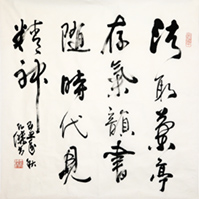 法取蘭亭
存氣韻書
隨時代見
精神